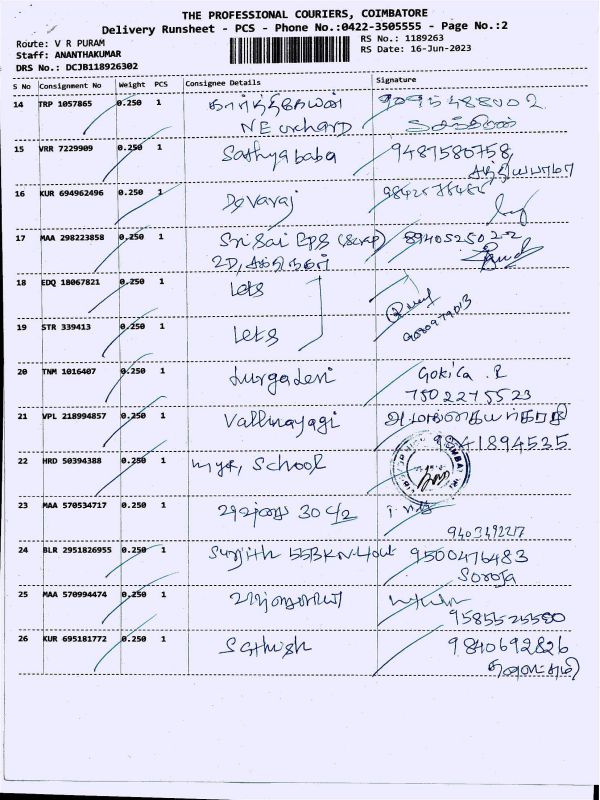 THE PROFESSIONAL COURIERS, COIMBATORE
Delivery Runsheet - PCS - Phone No.:0422-3505555 - Page No.:2
Route: V R PURAM
RS No.: 1189263
Staff: ANANTHAKUMAR
RS Date: 16-Jun-2023
DRS No.: DCJB118926302
S No Consignment No Weight PCS Consignee Details Signature
14 TRP 1057865 0.250 1 கார்த்திகேயன் 9095488002
NE orchard
15 VRR 7229909 0.250 1 Sathyababa 9487580758
சத்தியபாமா
16 KUR 694962496 0.250 1 Devaraj
17 MAA 298223858 0.250 1 Sri Sai EPS 8940525022
2D,
18 EDQ 18067821 0.250 1 Lets
9080979013
19 STR 339413 0.250 1 Lets
20 TNM 1016407 0.250 1 Durgadevi Gokila . R
7502275523
21 VPL 218994857 0.250 1 Vallinayagi
9841894535
22 HRD 50394388 0.250 1 School
23 MAA 570534717 0.250 1 30 C/2
24 BLR 2951826955 0.250 1 Surjith 55BKN 9500476483
Soroja
25 MAA 570994474 0.250 1
9585525550
26 KUR 695181772 0.250 1 Sathish 9840692826
தனலட்சுமி